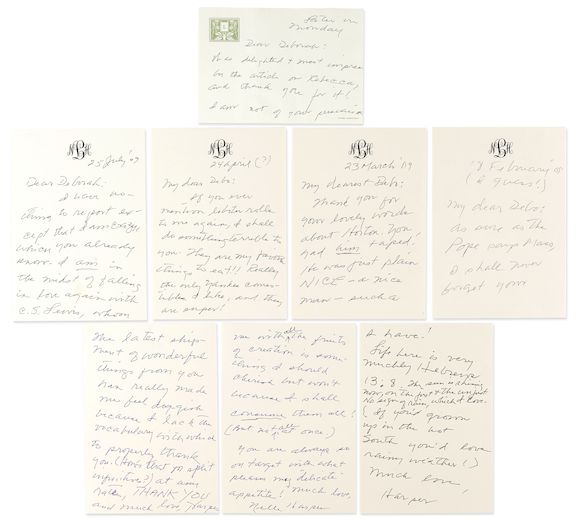 Later on
Monday
Dear Deborah:
Was delighted & most impress
by the article on Rebecca,
and thank you for it!
I am not of your persuasion
NBH
25 July '09
Dear Deborah:
I have no-
thing to report ex-
cept that I am crazy,
which you already
know. I am in
the midst of falling
in love again with
C.S. Lewis, whom
NBH
April (?)
My dear Debs:
If you ever
mention lobster rolls
to me again, I shall
do something terrible to
you. They are my favorite
things to eat!! Really,
the only Yankee comes-
tibles I like, and they
are super!
NBH
23 March '09
My dearest Debs:
Thank you for
your lovely words
about Horton. You
had him taped.
He was just plain
NICE - a nice
man - such a
NBH
February
(I guess!)
My dear Debs:
As sure as the
Pope says Mass,
I shall never
forget your
The latest ship-
ment of wonderful
things from you
has really made
me feel
because I lack the
vocabulary with which
to properly thank
you. (How's that for split
infinitives?) At any
rate, THANK YOU
and much love, Harper
me with all the fruits
of creation is some-
thing I should
cherish but won't
because I shall
consume them all!
(But not all at once)
You are always so
on target with what
pleases my delicate
appetite! Much love,
Nelle Harper
I have!
Life here is very
muchly Hebrews
13.8. The sun is shining
now, on the just & the unjust
no rain, which I love.
(If you'd grown
up in the hot
South you'd love
rainy weather!)
Much love,
Harper